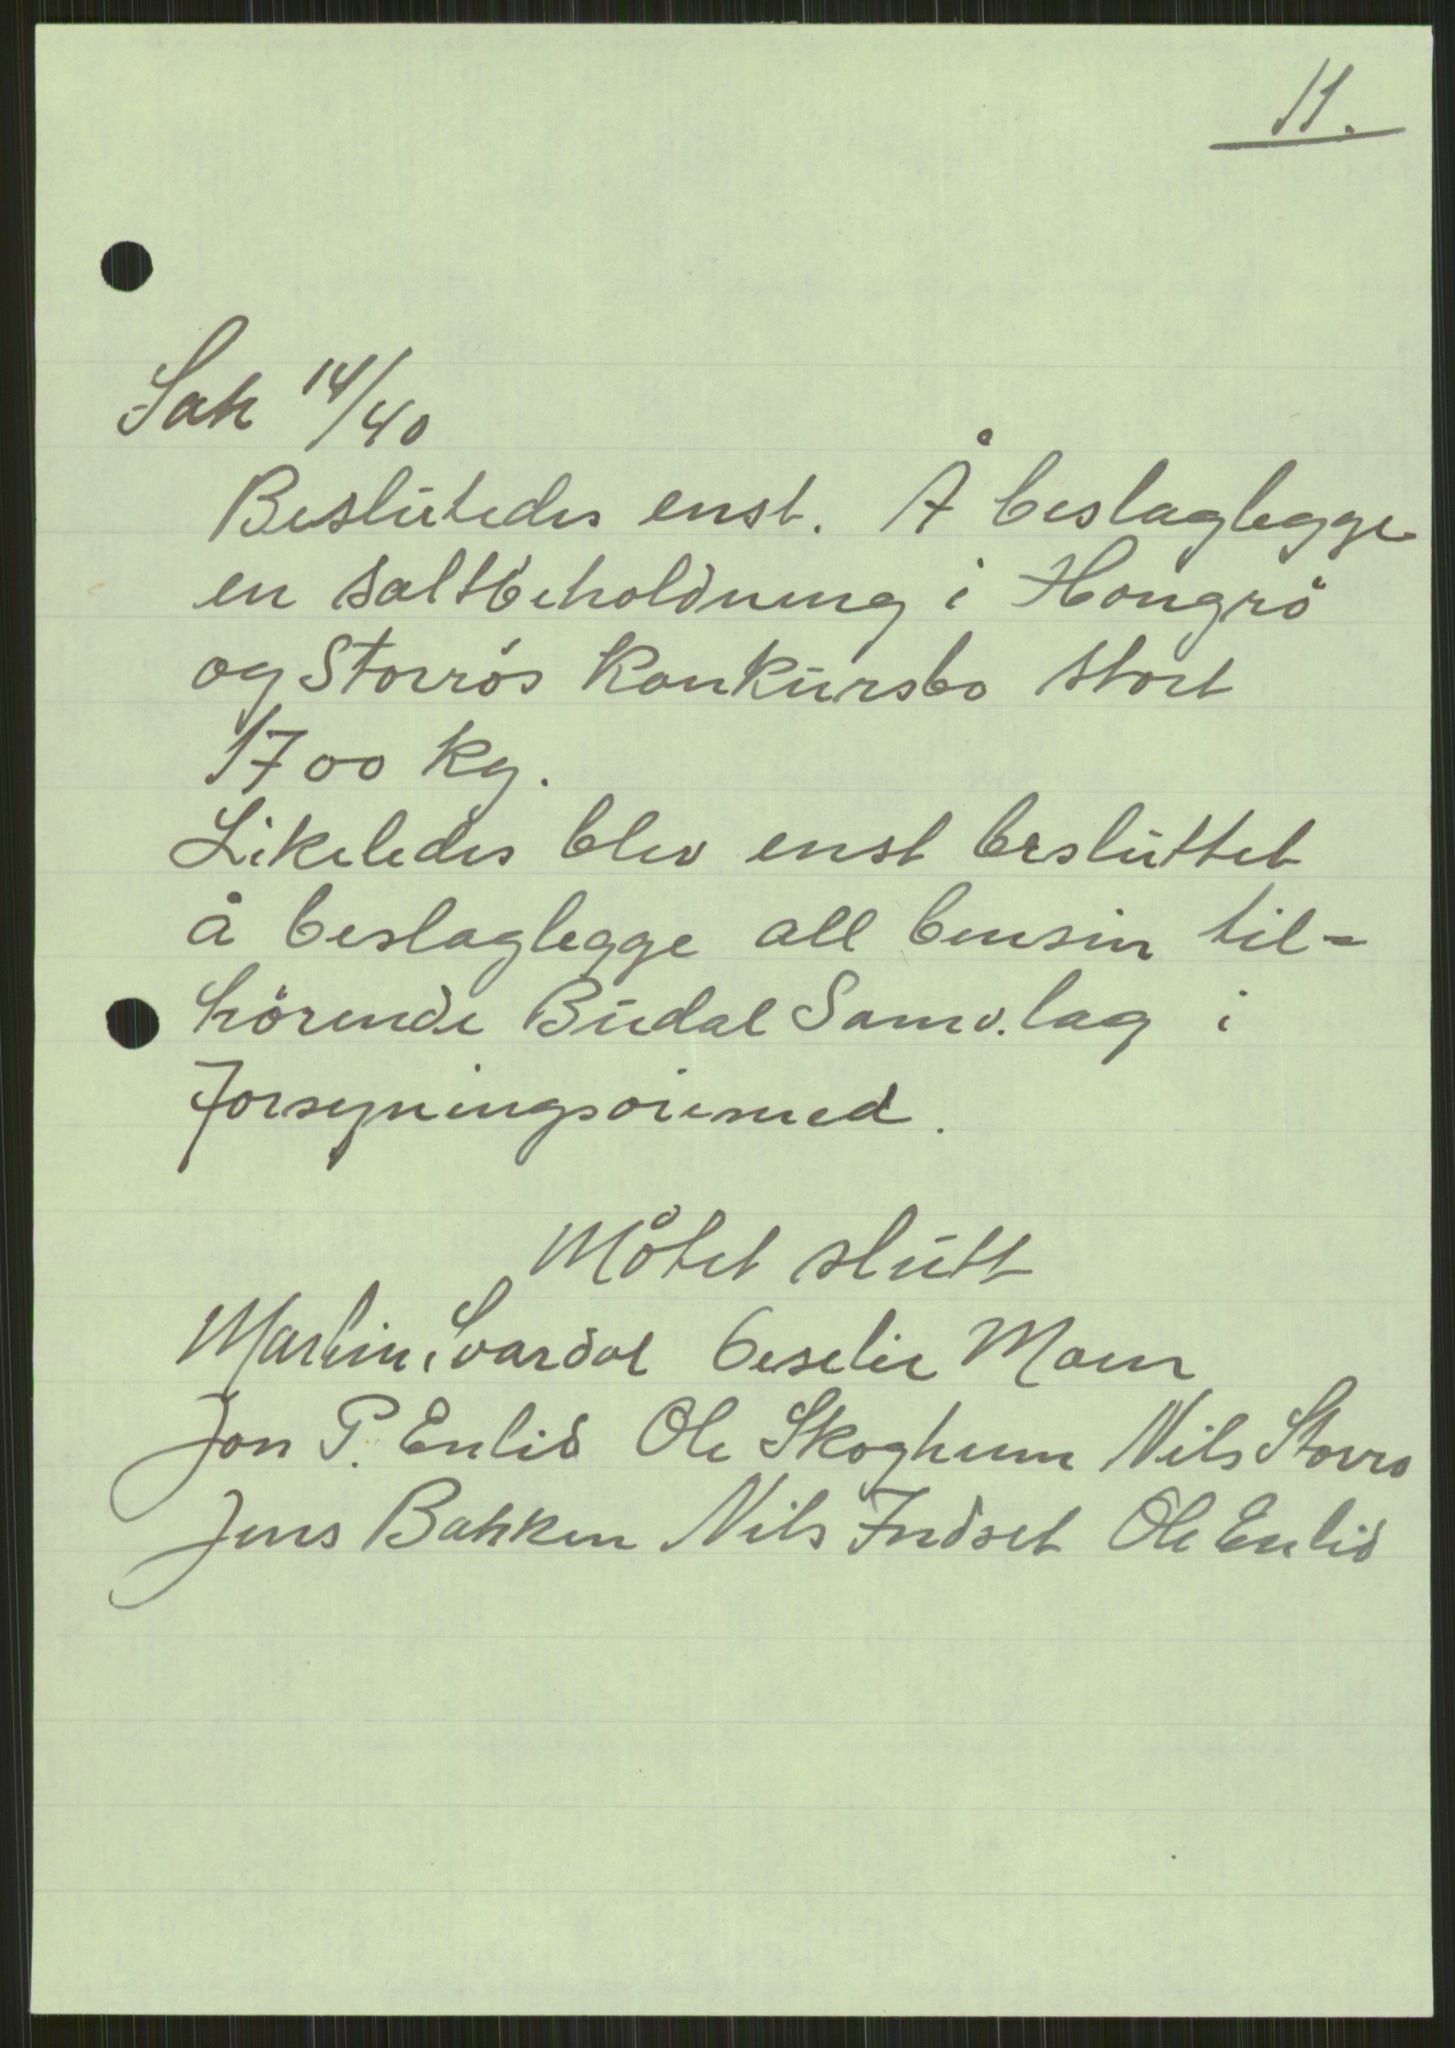 11.
Sak 14/40
Beslutedes enst. Å beslaglegge
en saltbeholdning i Hongrö
og Storrös Konkursbo stort
1700 kg.
Likeledes blev enst besluttet
å beslaglegge all bensin til-
hörende Budal Samv.lag i
forsyningsöiemed.
Mötet slutt
Martin Svardal Eeselie Moen
Jon P. Enlid Ole Skoghum Nils Storrö
Jens Bakken Nils Indset Ole Enlid